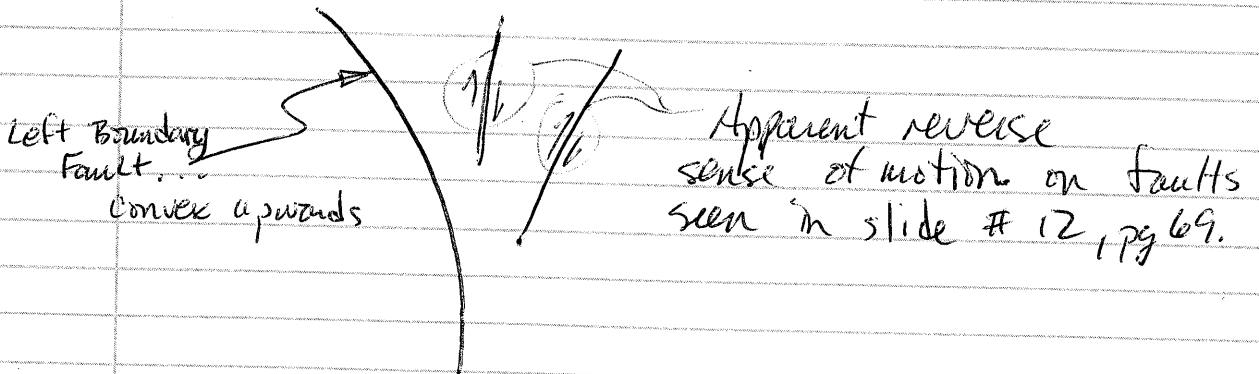 Left Boundary
Fault...
Convex upwards
Apparent reverse
sense of motion on faults
seen in slide # 12, pg 69.